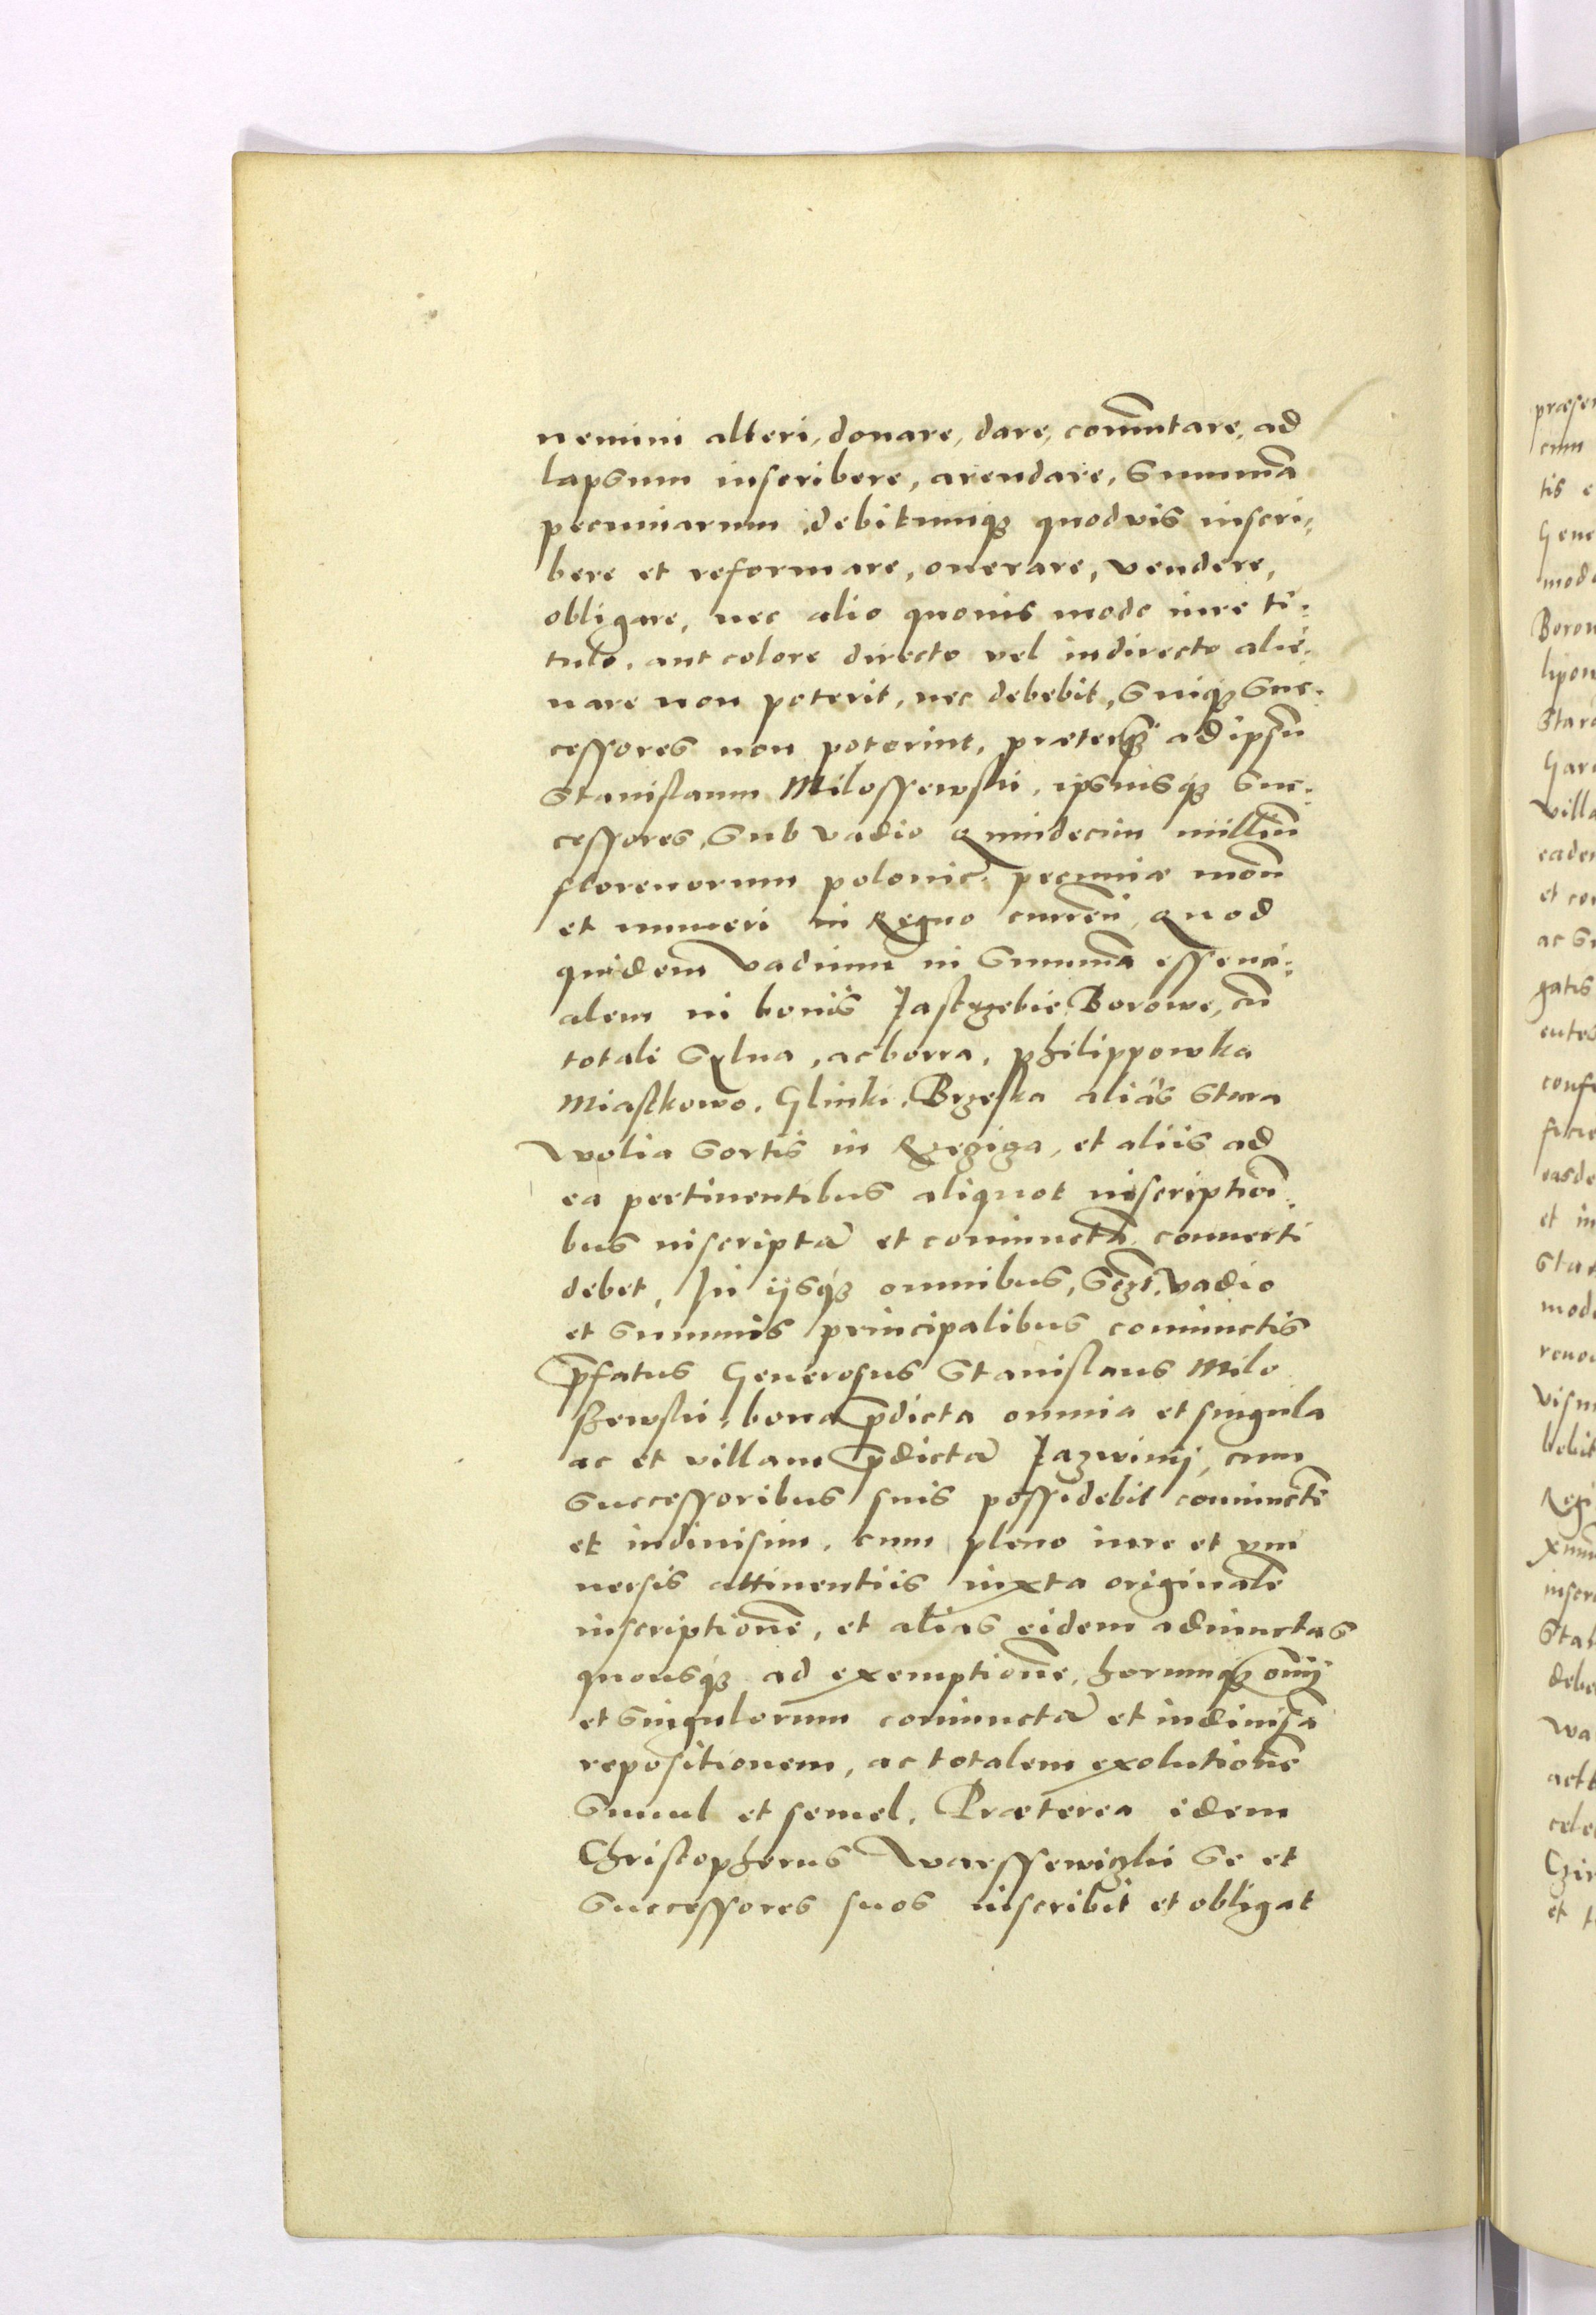 nemini alteri, donare, dare, com̃utare, ad
lapsum inscribere, arendare, summã
pecuniarum, debitumq₃ quodvis inscri:
bere et reformare, onerare, vendere,
obligare, nec alio quovis modo iure ti:
tulo, aut colore directo vel indirecto alie:
nare non poterit, nec debebit, suiq₃ suc:
cessores non poterint, præterq₃̃ ad ipsũ
Stanislaum Milossewski, ipsiusq₃ suc:
cessores, sub vadio quindecim milliũ
florenorum polonic. pecuniæ mon̄
et numeri in Regno curreñ, quod
quidem vadium in summã essenci:
alem in bonis Jastrzebie, Borowe, cũ
totali sylua, ac borra, philippowka
Miastkowo, Glinki, Brzeska aliàs stara
wolia sortis in Rzeziga, et aliis ad
ea pertinentibus aliquot inscription̄i:
bus inscriptã et coniunctã conuerti
debet, In ijsq₃ omnibus, vadio
et summis principalibus coniunctis
p̄fatus Generosus Stanislaus Milo
szewski, bona p̄dicta omnia et singula
ac et villam p̄dictã Jazwinij, cum
successoribus suis possidebit coniunctĩ
et indiuisim, cum pleno iure et vni
uersis attinentiis iuxta originalẽ
inscriptionẽ, et alias eidem adiunctas
quousq₃ ad exemptionẽ, horumq₃ om̃ij
et singulorum coniunctã et indiuisã
repositionem, ac totalem exolutionẽ
simul et semel. Præterea idem
Christopherus Warssewiczki se et
successores suos inscribit et obligat